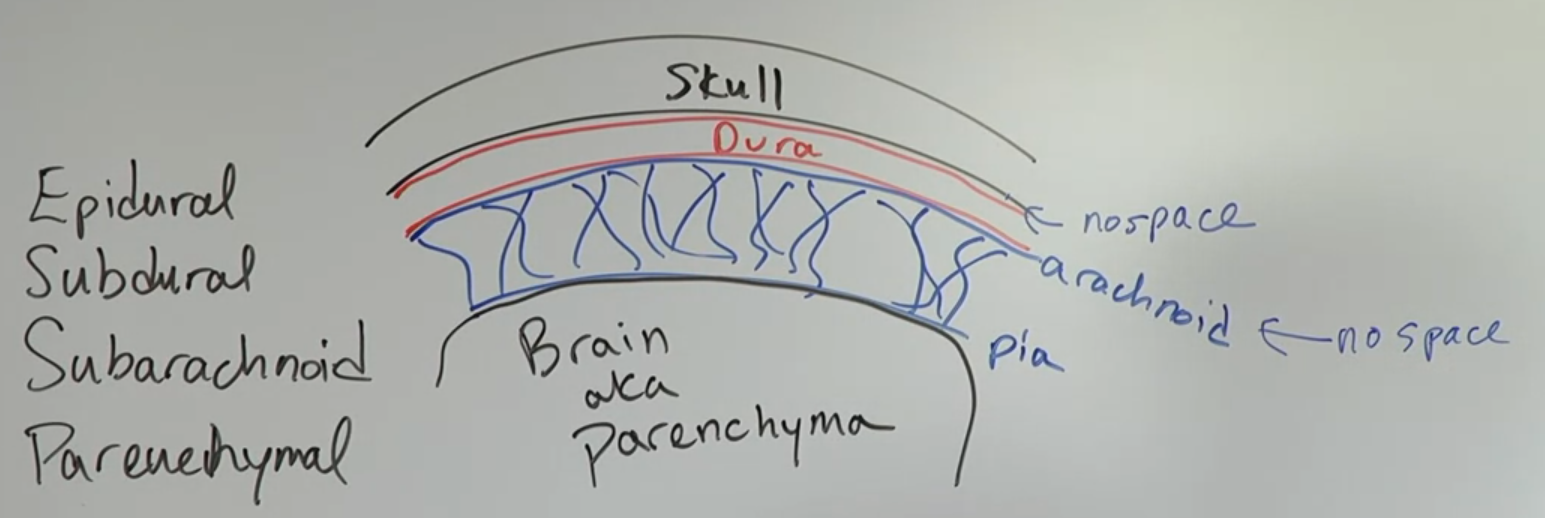 Skull
Dura
Epidural
Subdural
Subarachnoid
Parenchymal
← nospace
arachnoid ← no space
pia
Brain
aka
parenchyma